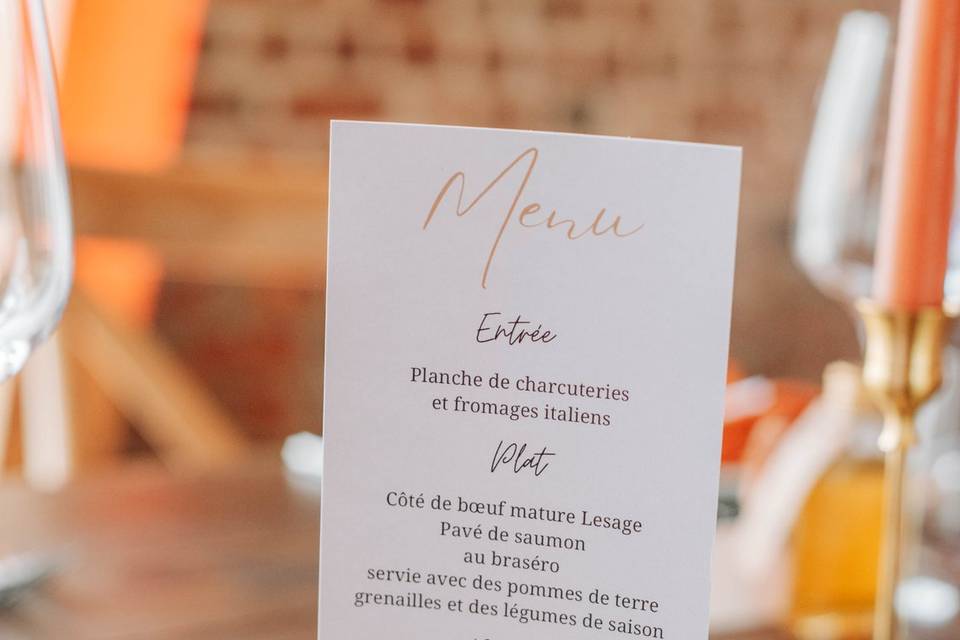 Menu
Entrée
Planche de charcuteries
et fromages italiens
Plat
Côté de bœuf mature Lesage
Pavé de saumon
au braséro
servie avec des pommes de terre
grenailles et des légumes de saison